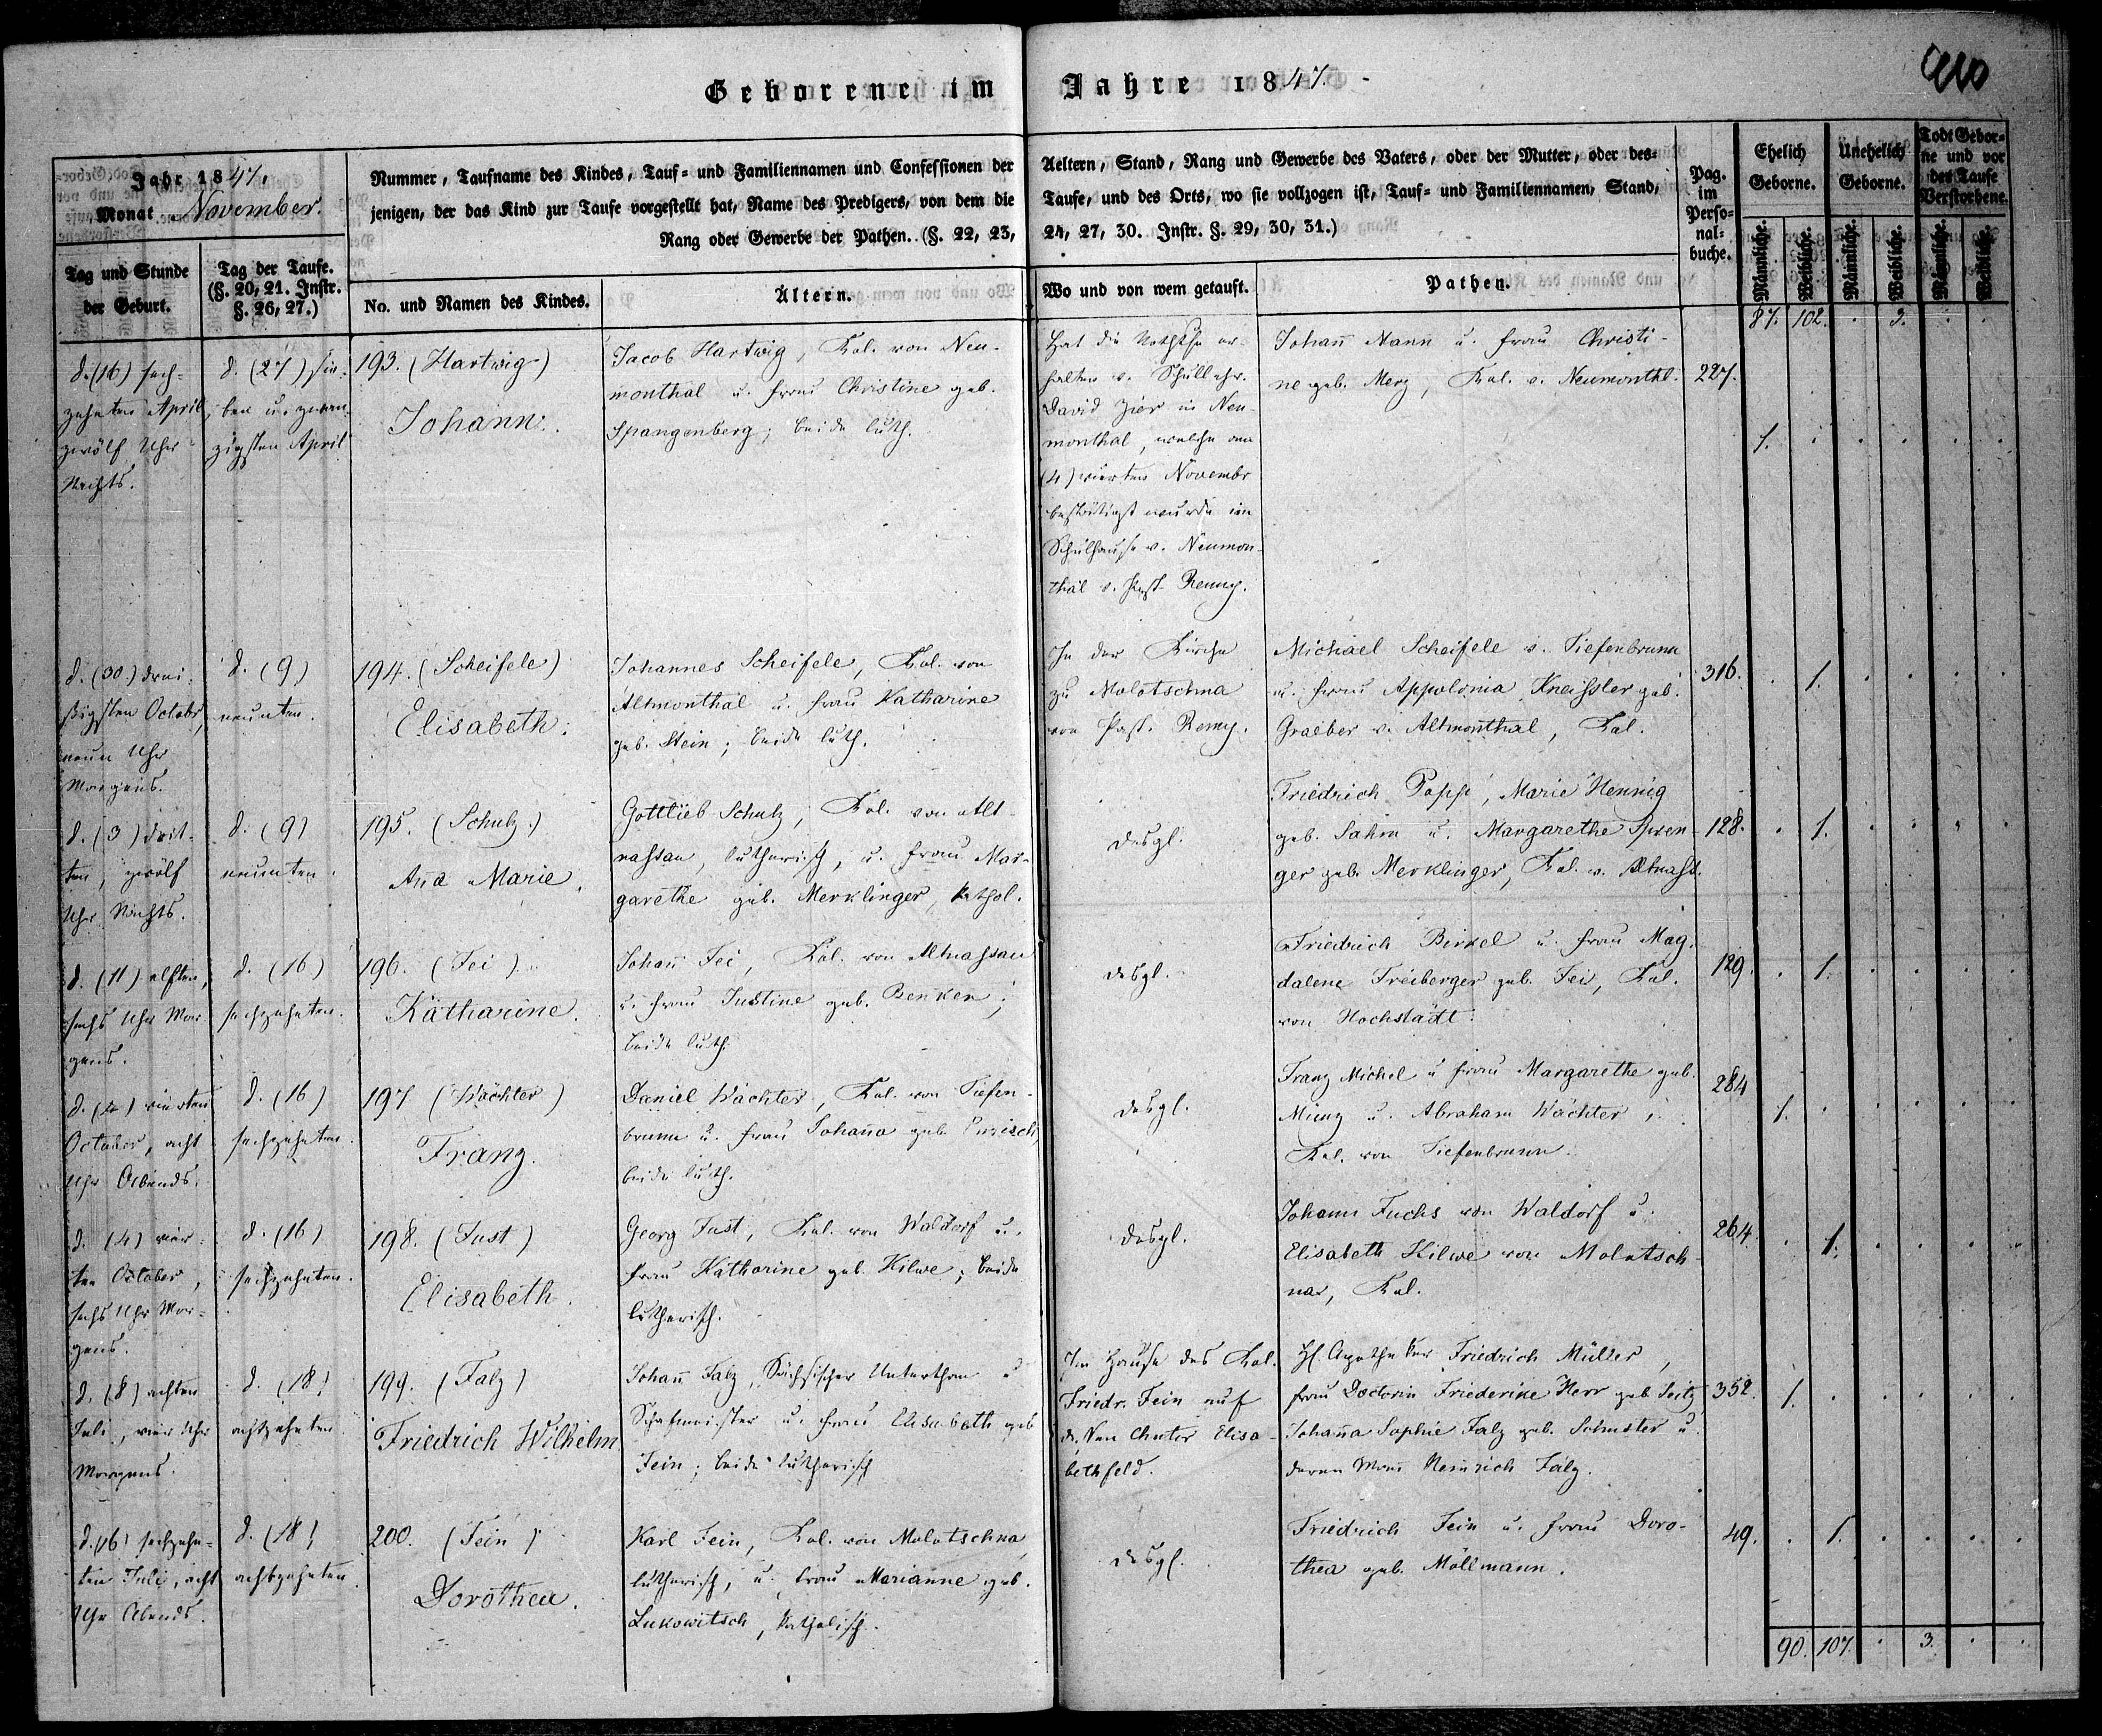 Geborene im Jahre 1847.
Jahr 1847.
Monat November.
Nummer, Taufname des Kindes, Tauf- und Familiennamen und Confessionen der Aeltern, Stand, Rang und Gewerbe des Vaters, oder der Mutter, oder des-
jenigen, der das Kind zur Taufe vorgestellt hat, Name des Predigers, von dem die Taufe, und des Orts, wo sie vollzogen ist, Tauf- und Familiennamen, Stand,
Rang oder Gewerbe der Pathen. (§. 22, 23, 24, 27, 30. Instr. §. 29, 30, 31.)
Pag. im Perso-nal-buche.
Ehelich Geborne.
Unehelich Geborne.
Todt Gebor-ne und vor der Taufe Verstorbene.
Tag und Stunde der Geburt.
Tag der Taufe. (§. 20, 21. Instr. §. 26, 27.)
No. und Namen des Kindes.
Ältern.
Wo und von wem getauft.
Pathen.
Männliche. Weibliche. Männliche. Weibliche. Männliche. Weibliche.
87. 102. . 3. . .
d. (16) sech-
zehnten April
zwölf Uhr
Nachts.
d. (27) sie-
ben u. zwan-
zigsten April
193. (Hartwig)
Johann.
Jacob Hartwig, Kol. von Neu-
monthal u. Frau Christine geb.
Spangenberg; beide luth.
Hat die Nothtfe er-
halten v. Schullehr.
David Zier in Neu-
monthal, welche am
(4) vierten Novembr
bestätigt wurde im
Schulhause v. Neumon-
thal v. Past. Remy.
Johañ Mann u. Frau Christi-
ne geb. Merz, Kol. v. Neumonthl.
227.
1.
d. (30.) drei-
ßigsten Octobr,
neun Uhr
Morgens.
d. (9)
neunten.
194. (Scheifele)
Elisabeth.
Johannes Scheifele, Kol. von
Altmonthal u. Frau Katharine
geb. Stein; beide luth.
In der Kirche
zu Molotschna
von Past. Remy.
Michael Scheifele v. Tiefenbrunn
u. Frau Appolonia Kneissler geb.
Graeber v. Altmonthal, Kol.
316.
1.
d. (3) drit-
ten, zwölf
Uhr Nachts.
d. (9)
neunten.
195. (Schulz.)
Aña Marie.
Gottlieb Schulz, Kol. von Alt-
nassau, lutherisch, u. Frau Mar-
garethe geb. Merklinger, kathol.
desgl.
Friedrich Popp, Marie Hennig
geb. Sahm u. Margarethe Spren-
ger geb. Merklinger, Kol. v. Altnass.
128.
1.
d. (11) elften,
sechs Uhr Mor-
gens.
d. (16)
sechzehnten.
196. (Fei)
Katharine.
Johañ Fei, Kol. von Altnassau
u. Frau Justine geb. Benken;
beide luth.
desgl.
Friedrich Birkel u. Frau Mag-
dalene Treiberger geb. Fei, Kol.
von Hochstädt.
129.
1.
d. (4) vierten
October, acht
Uhr Abends.
d. (16)
sechzehnten.
197 (Wächter)
Franz.
Daniel Wächter, Kol. von Tiefen-
brunn u. Frau Johaña geb.
beide luth.
desgl.
Franz Michel u Frau Margarethe geb.
u. Abraham Wächter,
Kol. von Tiefenbrunn.
284
1.
d. (4) vier-
ten October,
sechs Uhr Mor-
gens.
d. (16)
sechzehnten.
198. (Fust)
Elisabeth.
Georg Fust, Kol. von Waldorf u.
Frau Katharine geb. Hilwe; beide
lutherisch.
desgl.
Johann Fuchs von Waldorf u.
Elisabeth Hilwe von Molotsch-
na, Kol.
264.
1.
d. (8) achten
Juli, vier Uhr
Morgens.
d. (18)
achtzehnten.
199. (Falz)
Friedrich Wilhelm
Johañ Falz, Sächsischer Unterthan u
Schafmeister u. Frau Elisabeth geb
Fein; beide lutherisch
Im Hause des Kol.
Friedr. Fein auf
d. Chutor Elisa-
bethfeld.
H. Apotheker Friedrich Müller,
Frau Doctorin Friederike Herr geb. Seitz
Johaña Sophie Falz geb. Schuster u.
deren Mañ Heinrich Falz.
352.
1.
d. (16) sechzehn-
ten Juli, acht
Uhr Abends.
d. (18)
achtzehnten.
200. (Fein)
Dorothea.
Karl Fein, Kol. von Molotschna,
lutherisch, u. Frau Marianne geb.
Lukowitsch, katholisch.
desgl.
Friedrich Fein u. Frau Doro-
thea geb. Möllmann.
49.
1.
90. 107. . 3. . .